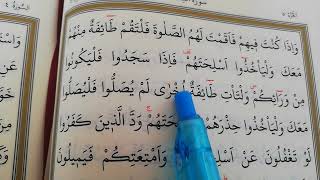 وَاِذَا كُنْتَ فِيهِمْ فَاَقَمْتَ لَهُمُ الصَّلٰوةَ فَلْتَقُمْ طَٓائِفَةٌ مِنْهُمْ
مَعَكَ وَلْيَأْخُذُٓوا اَسْلِحَتَهُمْ فَاِذَا سَجَدُوا فَلْيَكُونُوا
مِنْ وَرَٓائِكُمْ وَلْتَأْتِ طَٓائِفَةٌ اُخْرٰى لَمْ يُصَلُّوا فَلْيُصَلُّوا
مَعَكَ وَلْيَأْخُذُوا حِذْرَهُمْ وَدَّ الَّذِينَ كَفَرُوا
لَوْ تَغْفُلُونَ عَنْ وَاَمْتِعَتِكُمْ فَيَمِيلُونَ